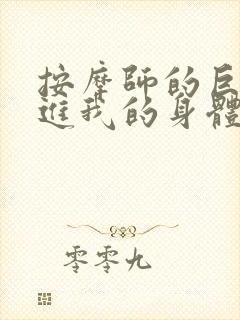 按摩師的巨
進我的身體
零零九